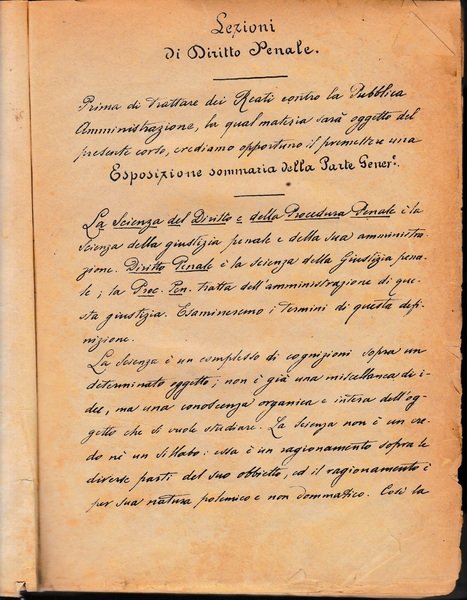 Lezioni
di Diritto Penale.
Prima di trattare dei Reati contro la Pubblica
Amministrazione, la qual materia sarà oggetto del
presente corso, crediamo opportuno il premettere una
Esposizione sommaria della Parte Gener.
La Scienza del Diritto e della Procedura Penale è la
Scienza della giustizia penale e della sua amministra
zione. Diritto Penale è la scienza della Giustizia pena
le; la Proc. Pen. tratta dell'amministrazione di que
sta giustizia. Esamineremo i termini di questa defi
nizione.
La Scienza è un complesso di cognizioni sopra un
determinato oggetto; non è già una miscellanea di i
dee, ma una conoscenza organica e intera dell'og
getto che si vuole studiare. La Scienza non è un cre
do nè un Sillabo: essa è un ragionamento sopra le
diverse parti del suo obbietto, ed il ragionamento è
per sua natura polemico e non dommatico. Così la